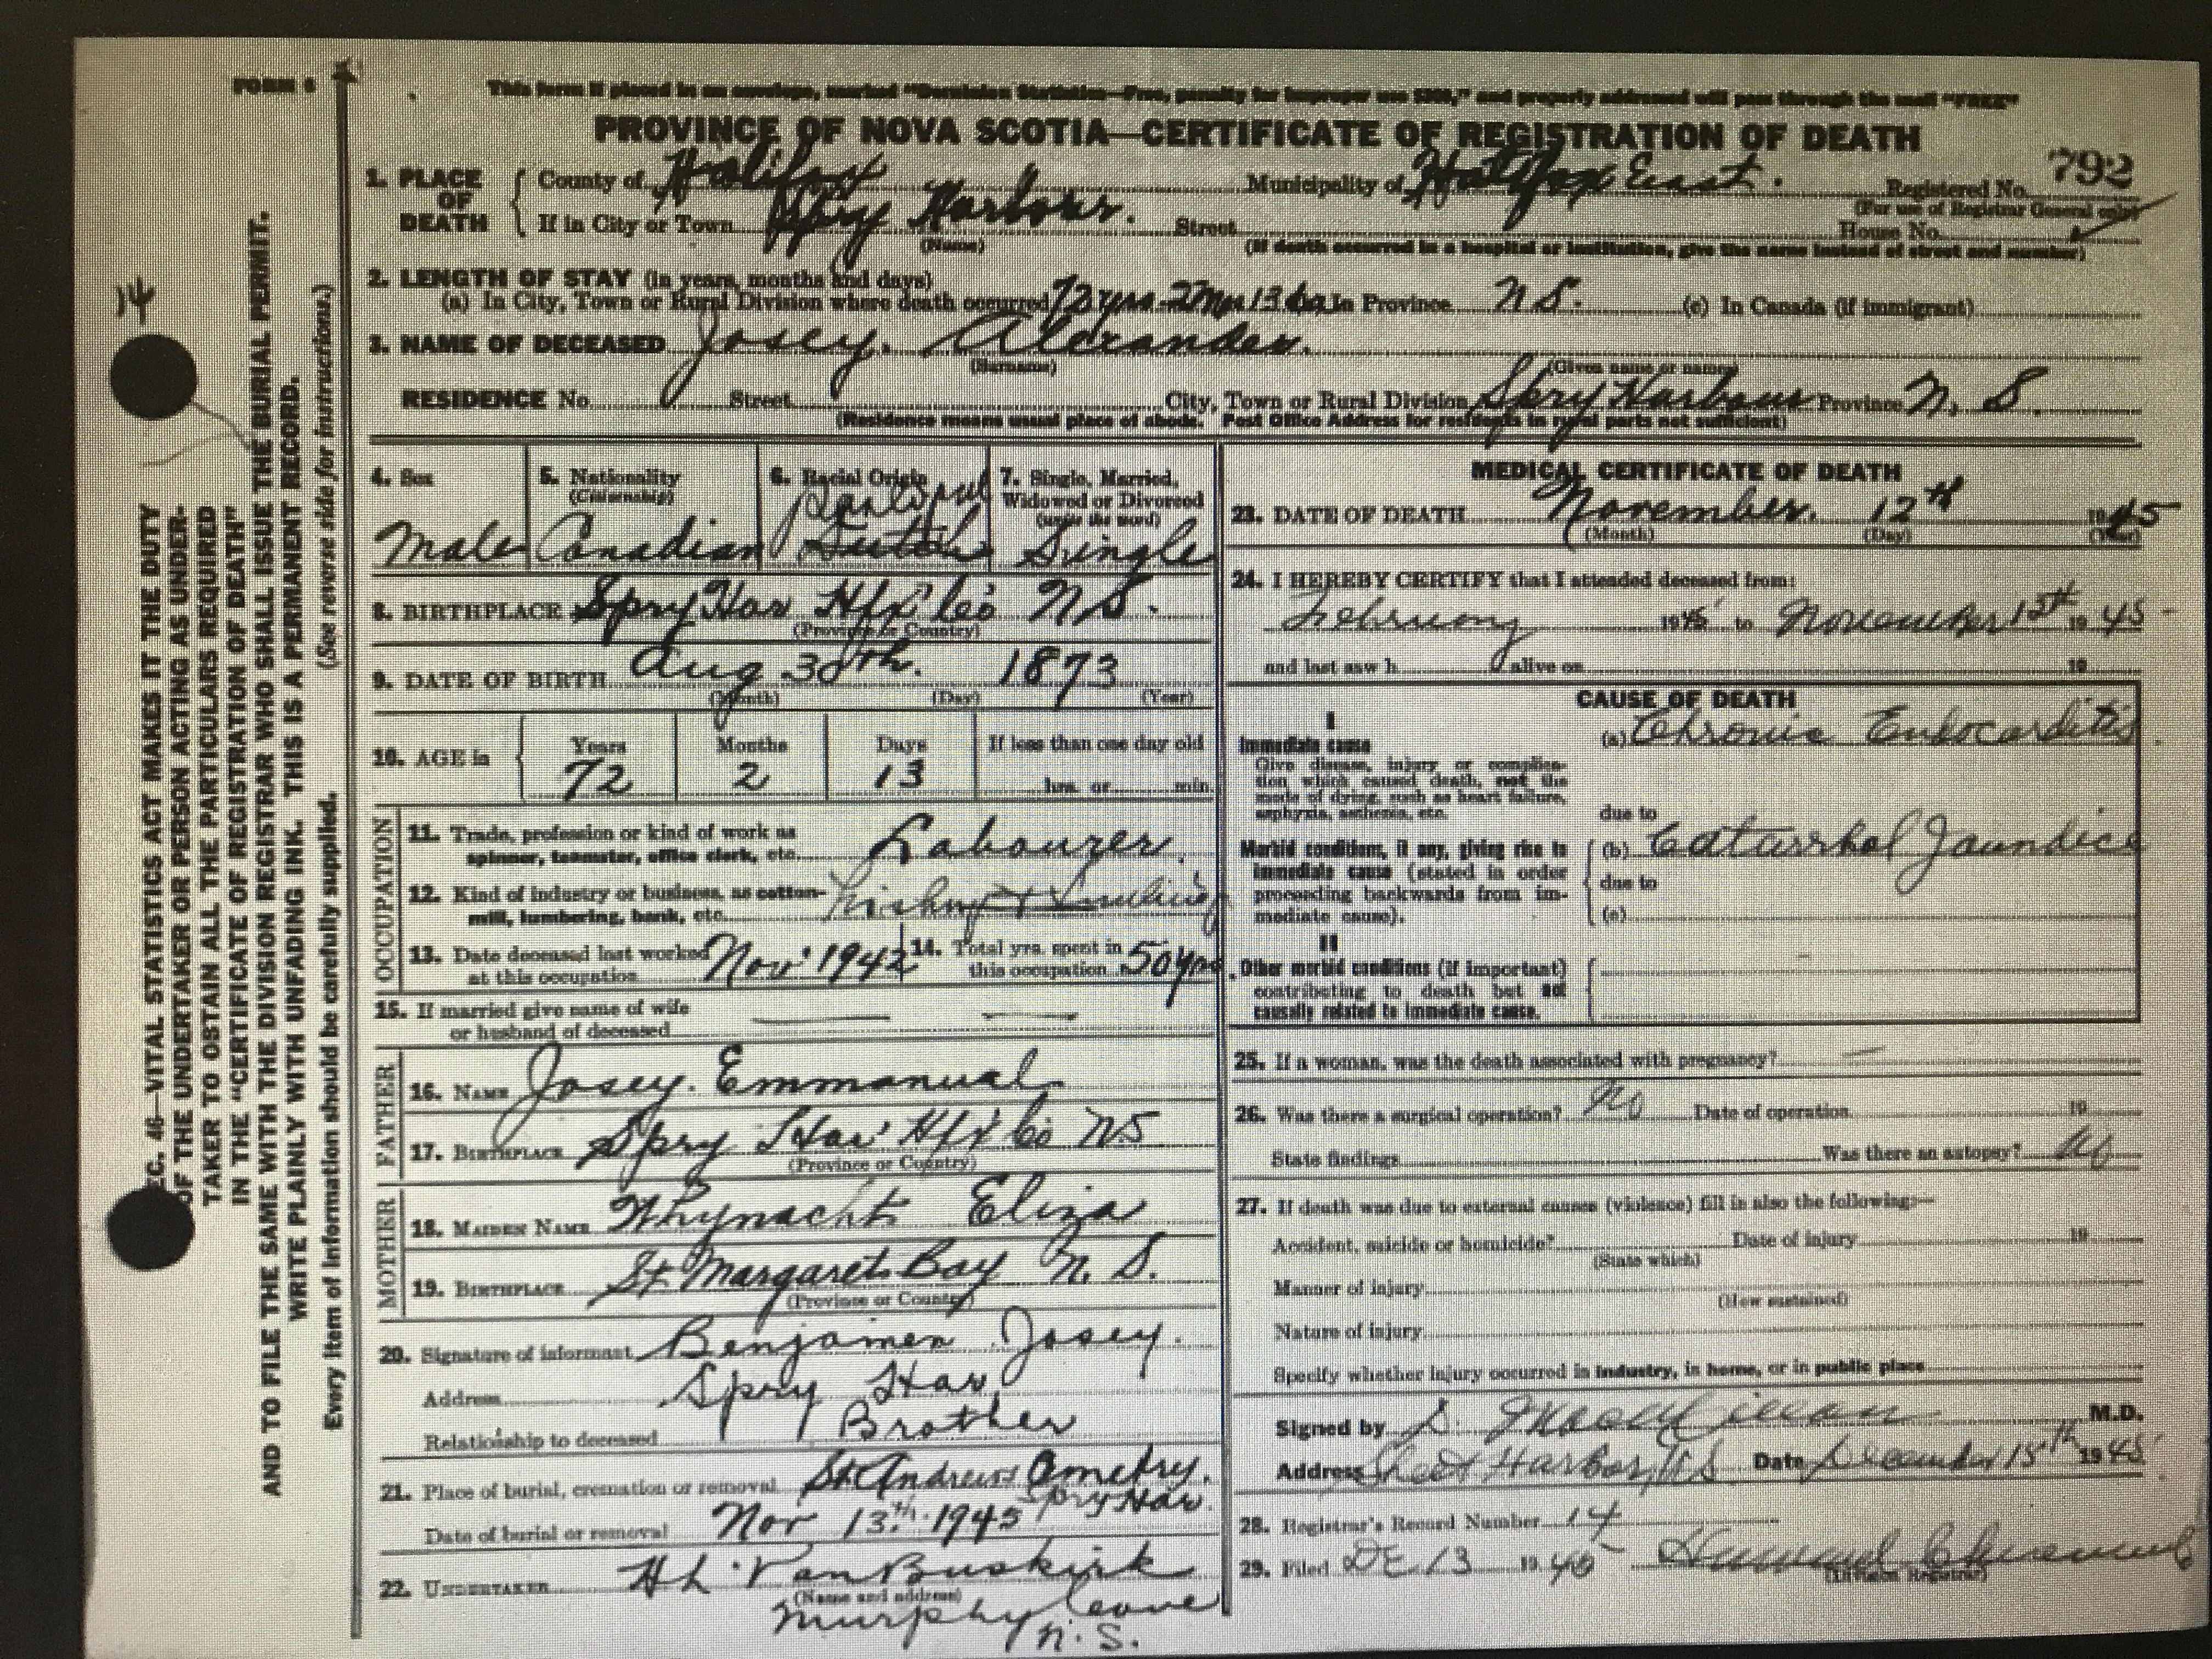 FORM 6
This form if placed in an envelope, marked "Dominion Statistics—Free, penalty for improper use $300," and properly addressed will pass through the mail "FREE"
PROVINCE OF NOVA SCOTIA—CERTIFICATE OF REGISTRATION OF DEATH
792
1. PLACE OF DEATH
County of Halifax Municipality of Halifax East. Registered No.
(For use of Registrar General only)
If in City or Town Spry Harbour. Street House No.
(Name) (If death occurred in a hospital or institution, give the name instead of street and number)
2. LENGTH OF STAY (in years, months and days)
(a) In City, Town or Rural Division where death occurred 72 yrs. 2 Mo 13 da In Province N.S. (c) In Canada (if immigrant)
3. NAME OF DECEASED Josey. Alexander.
(Surname) (Given name or names)
RESIDENCE No. Street City, Town or Rural Division Spry Harbour Province N. S.
(Residence means usual place of abode. Post Office Address for residents in rural parts not sufficient)
4. Sex
Male
5. Nationality
(Citizenship)
Canadian
6. Racial Origin
Dutch
7. Single, Married, Widowed or Divorced
(write the word)
Single
8. BIRTHPLACE Spry Har Hfx Co N.S.
(Province or Country)
9. DATE OF BIRTH Aug 30th. 1873
(Month) (Day) (Year)
10. AGE in
Years Months Days If less than one day old
72 2 13 hrs. or min.
OCCUPATION
11. Trade, profession or kind of work as
spinner, teamster, office clerk, etc. Labourer
12. Kind of industry or business, as cotton-
mill, lumbering, bank, etc. Fishing
13. Date deceased last worked
at this occupation Nov' 1942
14. Total yrs. spent in
this occupation 50 yrs
15. If married give name of wife
or husband of deceased
FATHER
16. NAME Josey. Emmanual
17. BIRTHPLACE Spry Har' Hfx Co NS
(Province or Country)
MOTHER
18. MAIDEN NAME Whynacht Eliza
19. BIRTHPLACE St. Margarets Bay N. S.
(Province or Country)
20. Signature of informant Benjamen Josey.
Address Spry Har
Relationship to deceased Brother
21. Place of burial, cremation or removal St. Andrews Cmetry.
Spry Har.
Date of burial or removal Nov 13th. 1945
22. UNDERTAKER H L VanBuskirk
(Name and address)
Murphy Cove
N. S.
MEDICAL CERTIFICATE OF DEATH
23. DATE OF DEATH November. 12th 1945
(Month) (Day) (Year)
24. I HEREBY CERTIFY that I attended deceased from:
February 1945 to November 15th 1945
and last saw h alive on 19
CAUSE OF DEATH
I
Immediate cause
Give disease, injury or complication which caused death, not the mode of dying, such as heart failure, asphyxia, asthenia, etc.
(a) Chronic Endocarditis
due to
Morbid conditions, if any, giving rise to immediate cause (stated in order proceeding backwards from immediate cause).
(b) Catarrhal Jaundice
due to
(c)
II
Other morbid conditions (if important) contributing to death but not causally related to immediate cause.
25. If a woman, was the death associated with pregnancy? —
26. Was there a surgical operation? No Date of operation 19
State findings Was there an autopsy? No
27. If death was due to external causes (violence) fill in also the following:—
Accident, suicide or homicide? Date of injury 19
(State which)
Manner of injury
(How sustained)
Nature of injury
Specify whether injury occurred in industry, in home, or in public place
Signed by M.D.
Address Sheet Harbor, NS Date December 15th 1945
28. Registrar's Record Number 14
29. Filed DE 13 1945
(Division Registrar)
14
SEC. 46—VITAL STATISTICS ACT MAKES IT THE DUTY
OF THE UNDERTAKER OR PERSON ACTING AS UNDER-
TAKER TO OSTAIN ALL THE PARTICULARS REQUIRED
IN THE "CERTIFICATE OF REGISTRATION OF DEATH"
AND TO FILE THE SAME WITH THE DIVISION REGISTRAR WHO SHALL ISSUE THE BURIAL PERMIT.
WRITE PLAINLY WITH UNFADING INK. THIS IS A PERMANENT RECORD.
Every item of information should be carefully supplied. (See reverse side for instructions.)